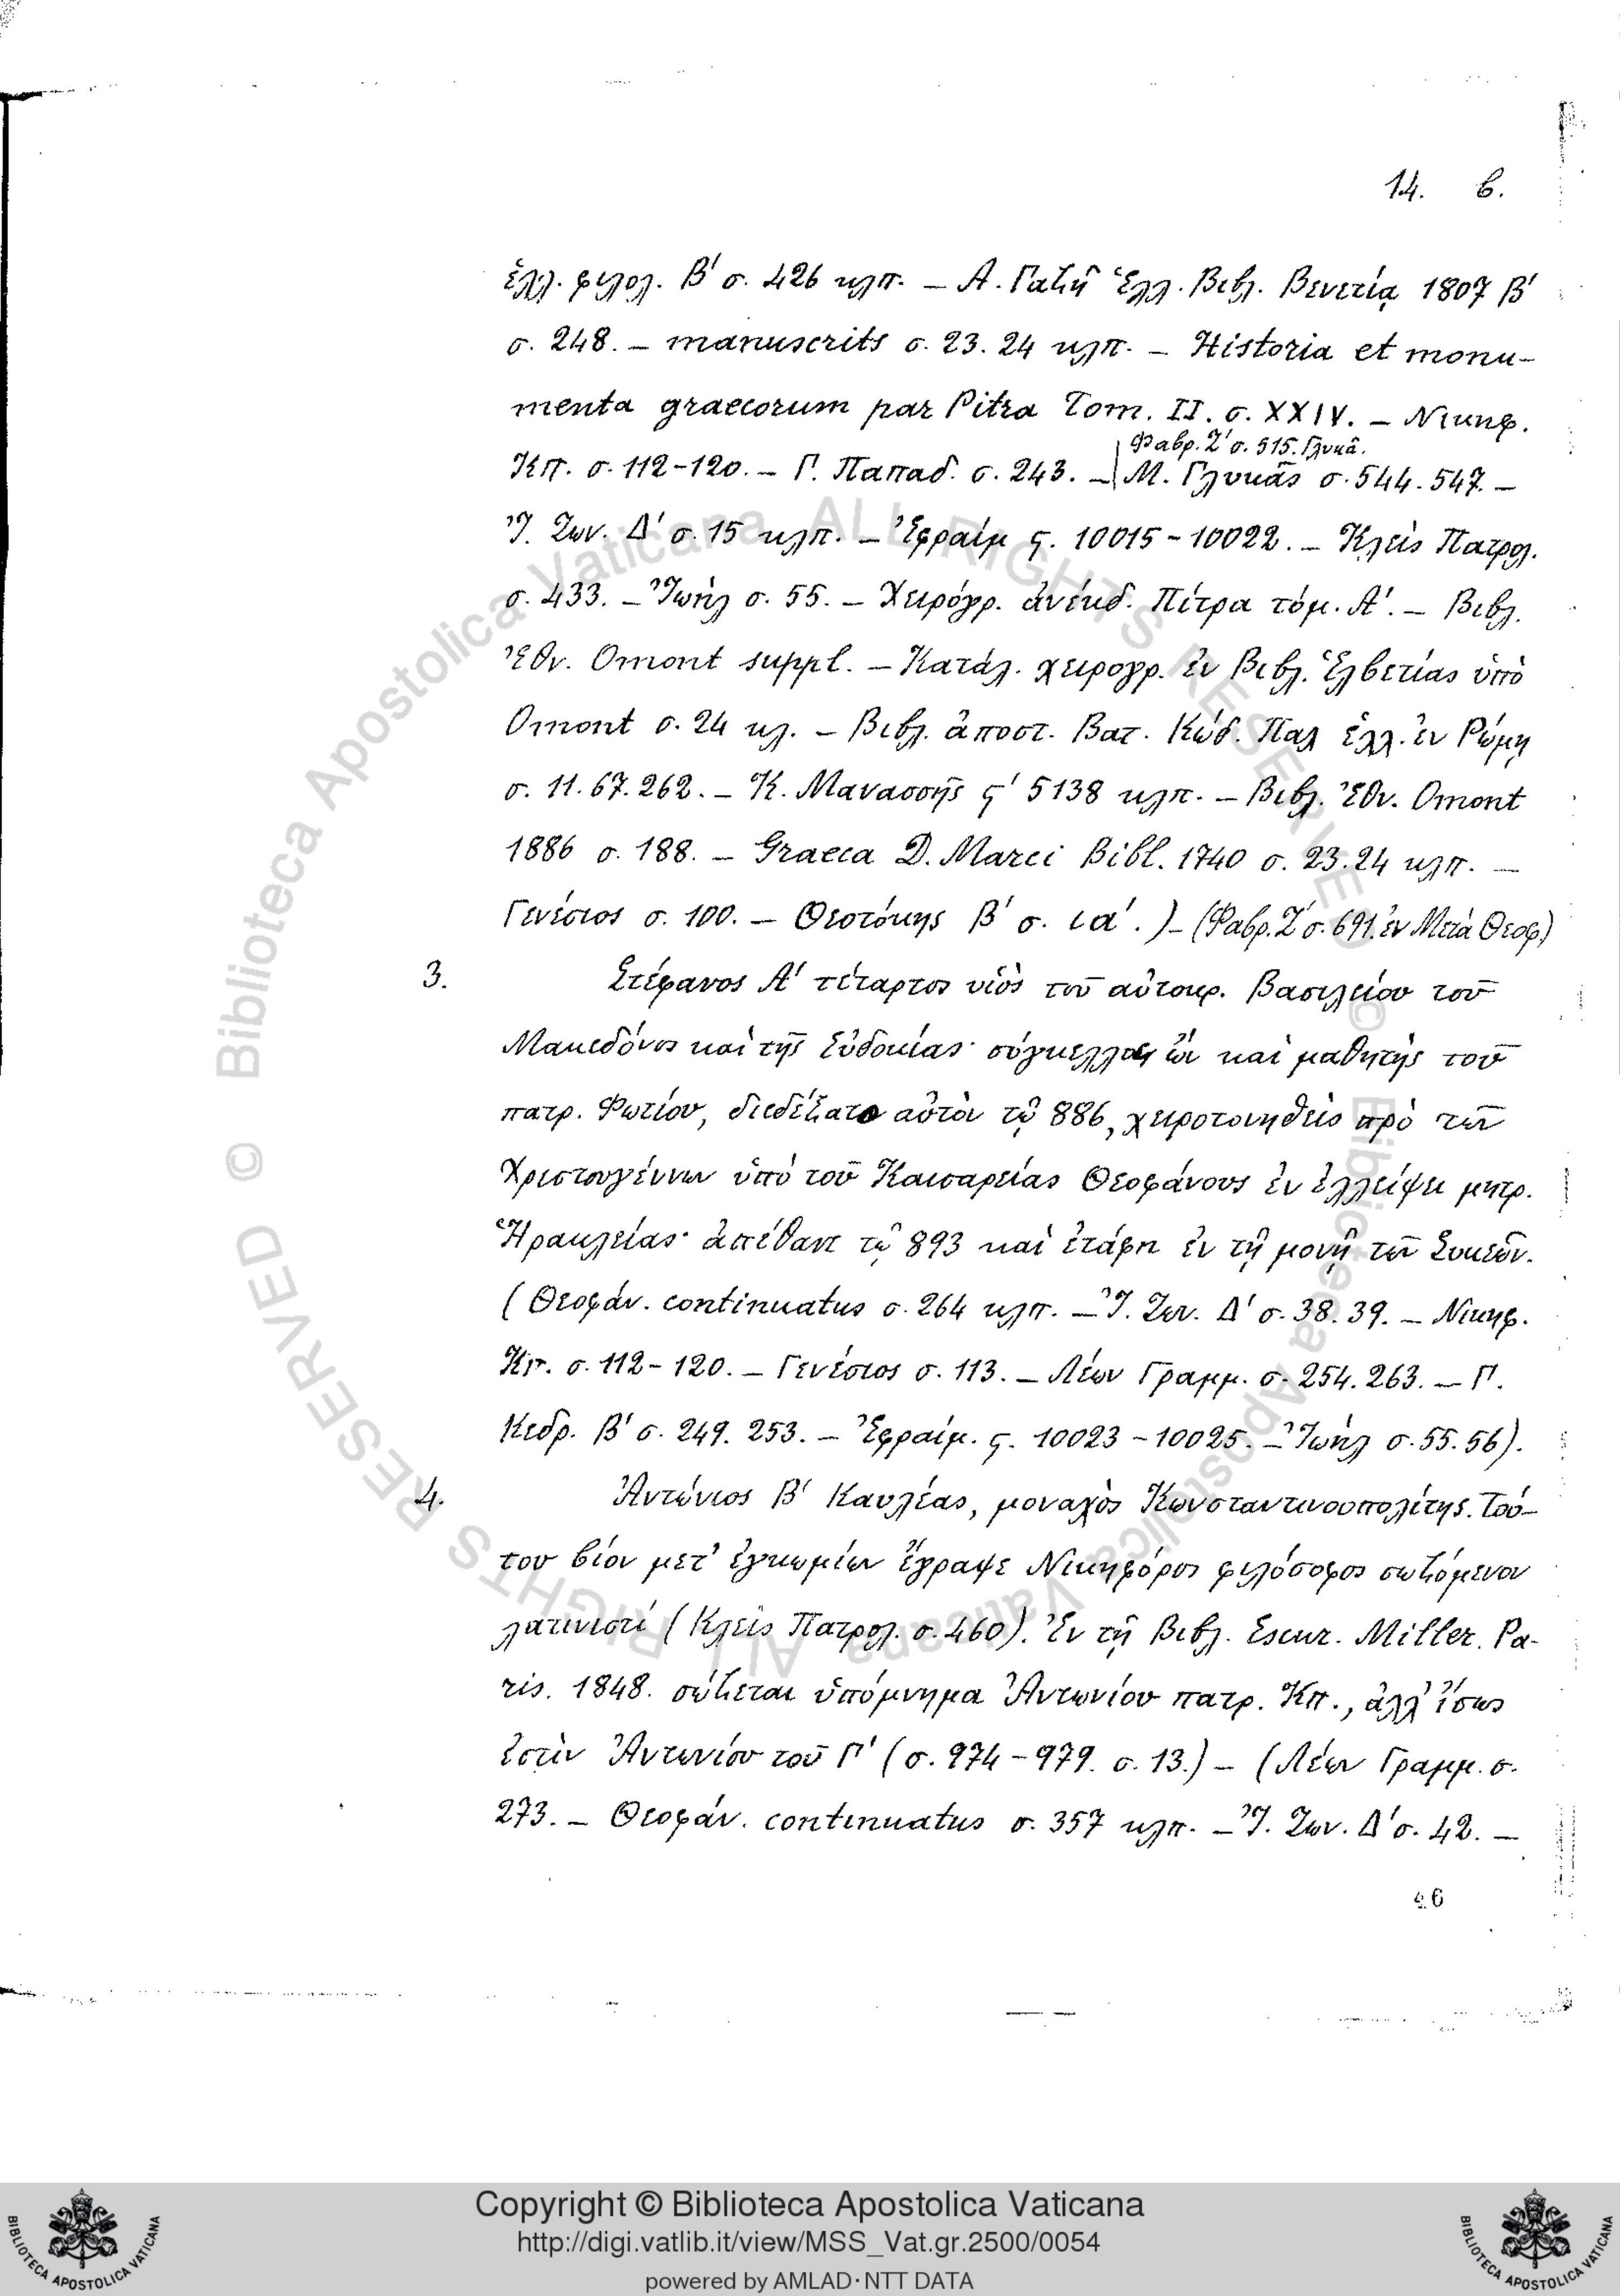 14. β.
ἑλλ. φιλολ. Β′ σ. 426 κλπ. – Α. Γαζῆ Ἑλλ. Βιβλ. Βενετίᾳ 1807 Β′
σ. 248. – manuscrits σ. 23. 24 κλπ. – Historia et monu-
menta graecorum par Pitra Tom. II. σ. XXIV. – Νικηφ.
Φαβρ. Ζ′ σ. 515. Γλυκᾶ.
Κπ. σ. 112-120. – Γ. Παπαδ. σ. 243. – Μ. Γλυκᾶς σ. 544. 547. –
Ἰ. Ζων. Δ′ σ. 15 κλπ. – Ἐφραίμ ς. 10015-10022. – Κλεὶς Πατρολ.
σ. 433. – Ἰωὴλ σ. 55. – Χειρόγρ. ἀνέκδ. Πίτρα τόμ. Α′. – Βιβλ.
Ἐθν. Omont suppl. – Κατάλ. χειρογρ. ἐν Βιβλ. Ἑλβετίας ὑπὸ
Omont σ. 24 κλ. – Βιβλ. ἀποστ. Βατ. Κώδ. Παλ ἑλλ. ἐν Ρώμῃ
σ. 11. 67. 262. – Κ. Μανασσῆς ς′ 5138 κλπ. – Βιβλ. Ἐθν. Omont
1886 σ. 188. – Graeca D. Marci Bibl. 1740 σ. 23. 24 κλπ. –
Γενέσιος σ. 100. – Θεοτόκης Β′ σ. ια′.) – (Φαβρ. Ζ′ σ. 691. ἐν Μετὰ Θεοφ.)
3. Στέφανος Α′ τέταρτος υἱὸς τοῦ αὐτοκρ. Βασιλείου τοῦ
Μακεδόνος καὶ τῆς Εὐδοκίας· σύγκελλος ὢν καὶ μαθητὴς τοῦ
πατρ. Φωτίου, διεδέξατο αὐτὸν τῷ 886, χειροτονηθεὶς πρὸ τῶν
Χριστουγέννων ὑπὸ τοῦ Καισαρείας Θεοφάνους ἐν ἐλλείψει μητρ.
Ἡρακλείας· ἀπέθανε τῷ 893 καὶ ἐτάφη ἐν τῇ μονῇ τῶν Συκεῶν.
(Θεοφάν. continuatus σ. 264 κλπ. – Ἰ. Ζων. Δ′ σ. 38. 39. – Νικηφ.
Κπ. σ. 112-120. – Γενέσιος σ. 113. – Λέων Γραμμ. σ. 254. 263. – Γ.
Κεδρ. Β′ σ. 249. 253. – Ἐφραίμ. ς. 10023-10025. – Ἰωὴλ σ. 55. 56).
4. Ἀντώνιος Β′ Καυλέας, μοναχὸς Κωνσταντινουπολίτης. Τού-
του βίον μετ' ἐγκωμίων ἔγραψε Νικηφόρος φιλόσοφος σωζόμενον
λατινιστί (Κλεὶς Πατρολ. σ. 460). Ἐν τῇ Βιβλ. Escur. Miller. Pa-
ris. 1848. σώζεται ὑπόμνημα Ἀντωνίου πατρ. Κπ., ἀλλ' ἴσως
ἐστὶν Ἀντωνίου τοῦ Γ′ (σ. 974-979. σ. 13.) – (Λέων Γραμμ. σ.
273. – Θεοφάν. continuatus σ. 357 κλπ. – Ἰ. Ζων. Δ′ σ. 42. –
46
© Biblioteca Apostolica Vaticana ALL RIGHTS RESERVED
© Biblioteca Apostolica Vaticana ALL RIGHTS RESERVED
Copyright © Biblioteca Apostolica Vaticana
http://digi.vatlib.it/view/MSS_Vat.gr.2500/0054
powered by AMLAD·NTT DATA
BIBLIOTECA APOSTOLICA VATICANA
BIBLIOTECA APOSTOLICA VATICANA